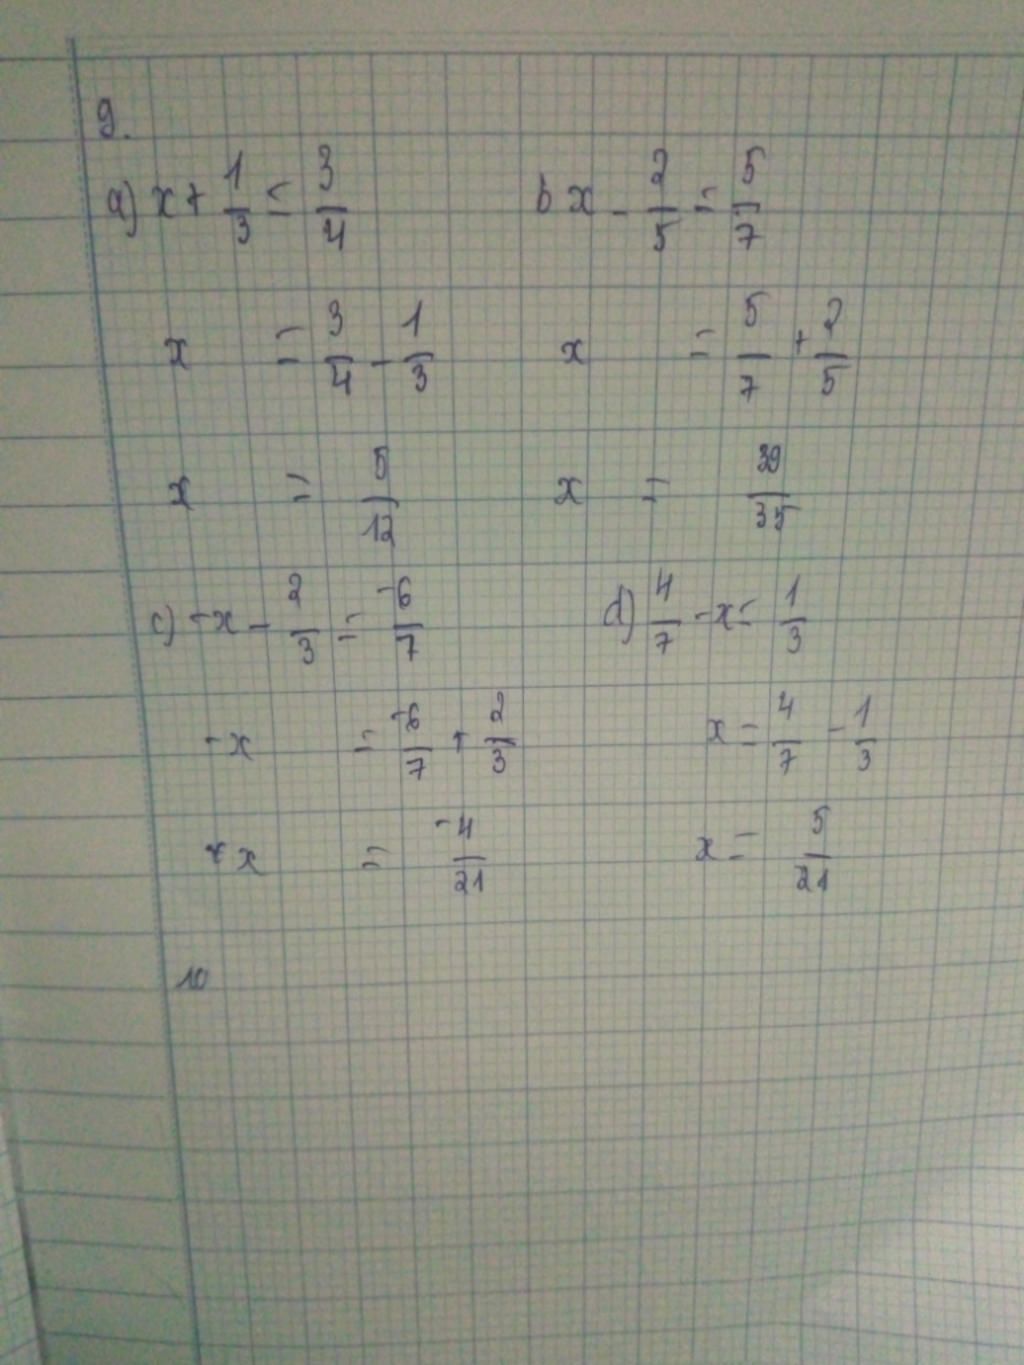 9.
a) x + 1/3 = 3/4
x = 3/4 - 1/3
x = 5/12
b x - 2/5 = 5/7
x = 5/7 + 2/5
x = 39/35
c) -x - 2/3 = -6/7
-x = -6/7 + 2/3
x = -4/21
d) 4/7 - x = 1/3
x = 4/7 - 1/3
x = 5/21
10